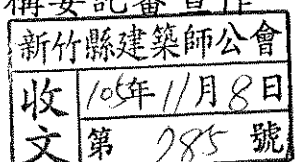 新竹縣建築師公會
收文
105年11月8日
第 785 號